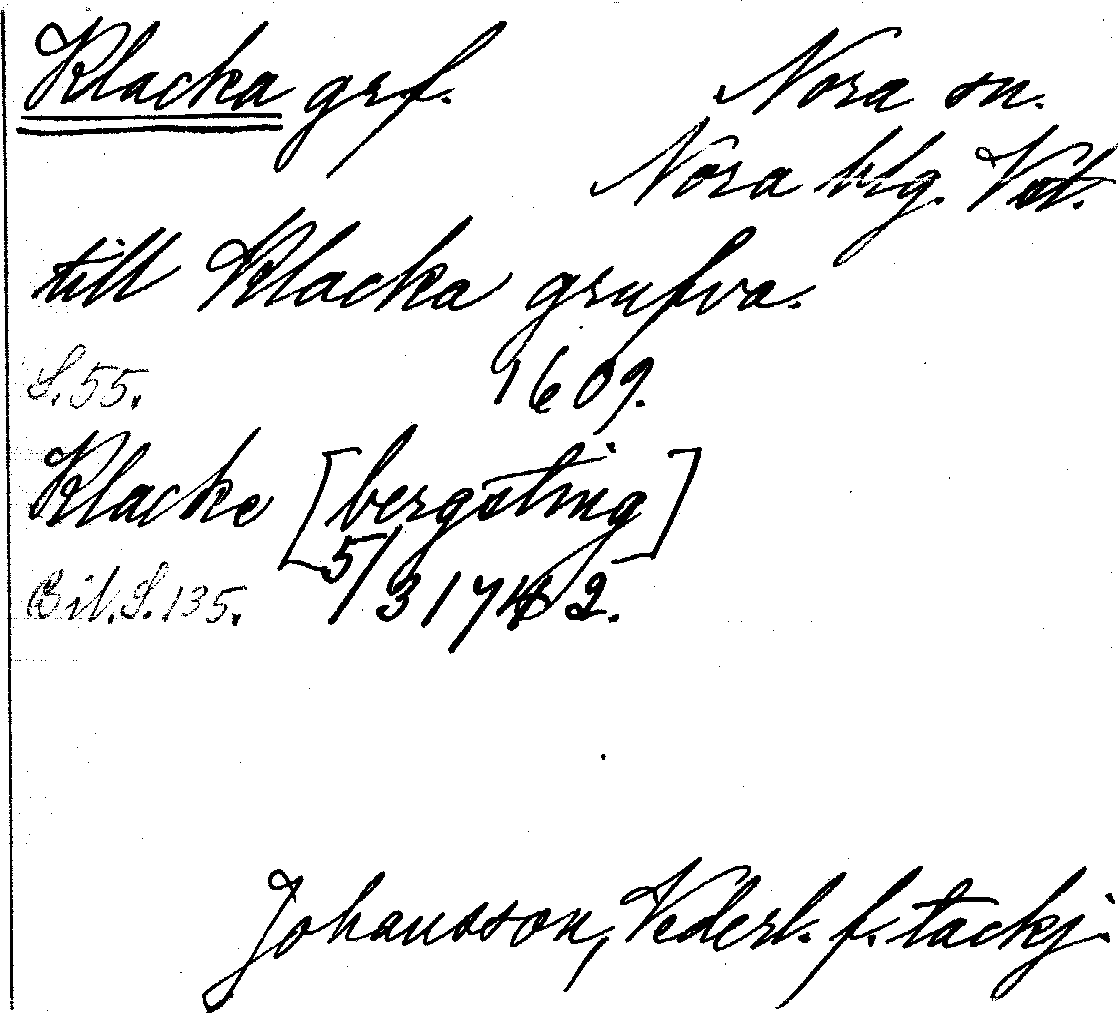 Klacka grf. Nora sn.
Nora blg. Vst.
till Klacka grufva.
S. 55. 1609.
Klacke [bergsting]
Bil. S. 135. 5/3 1742.
Johansson, Vederl. f. tackj.